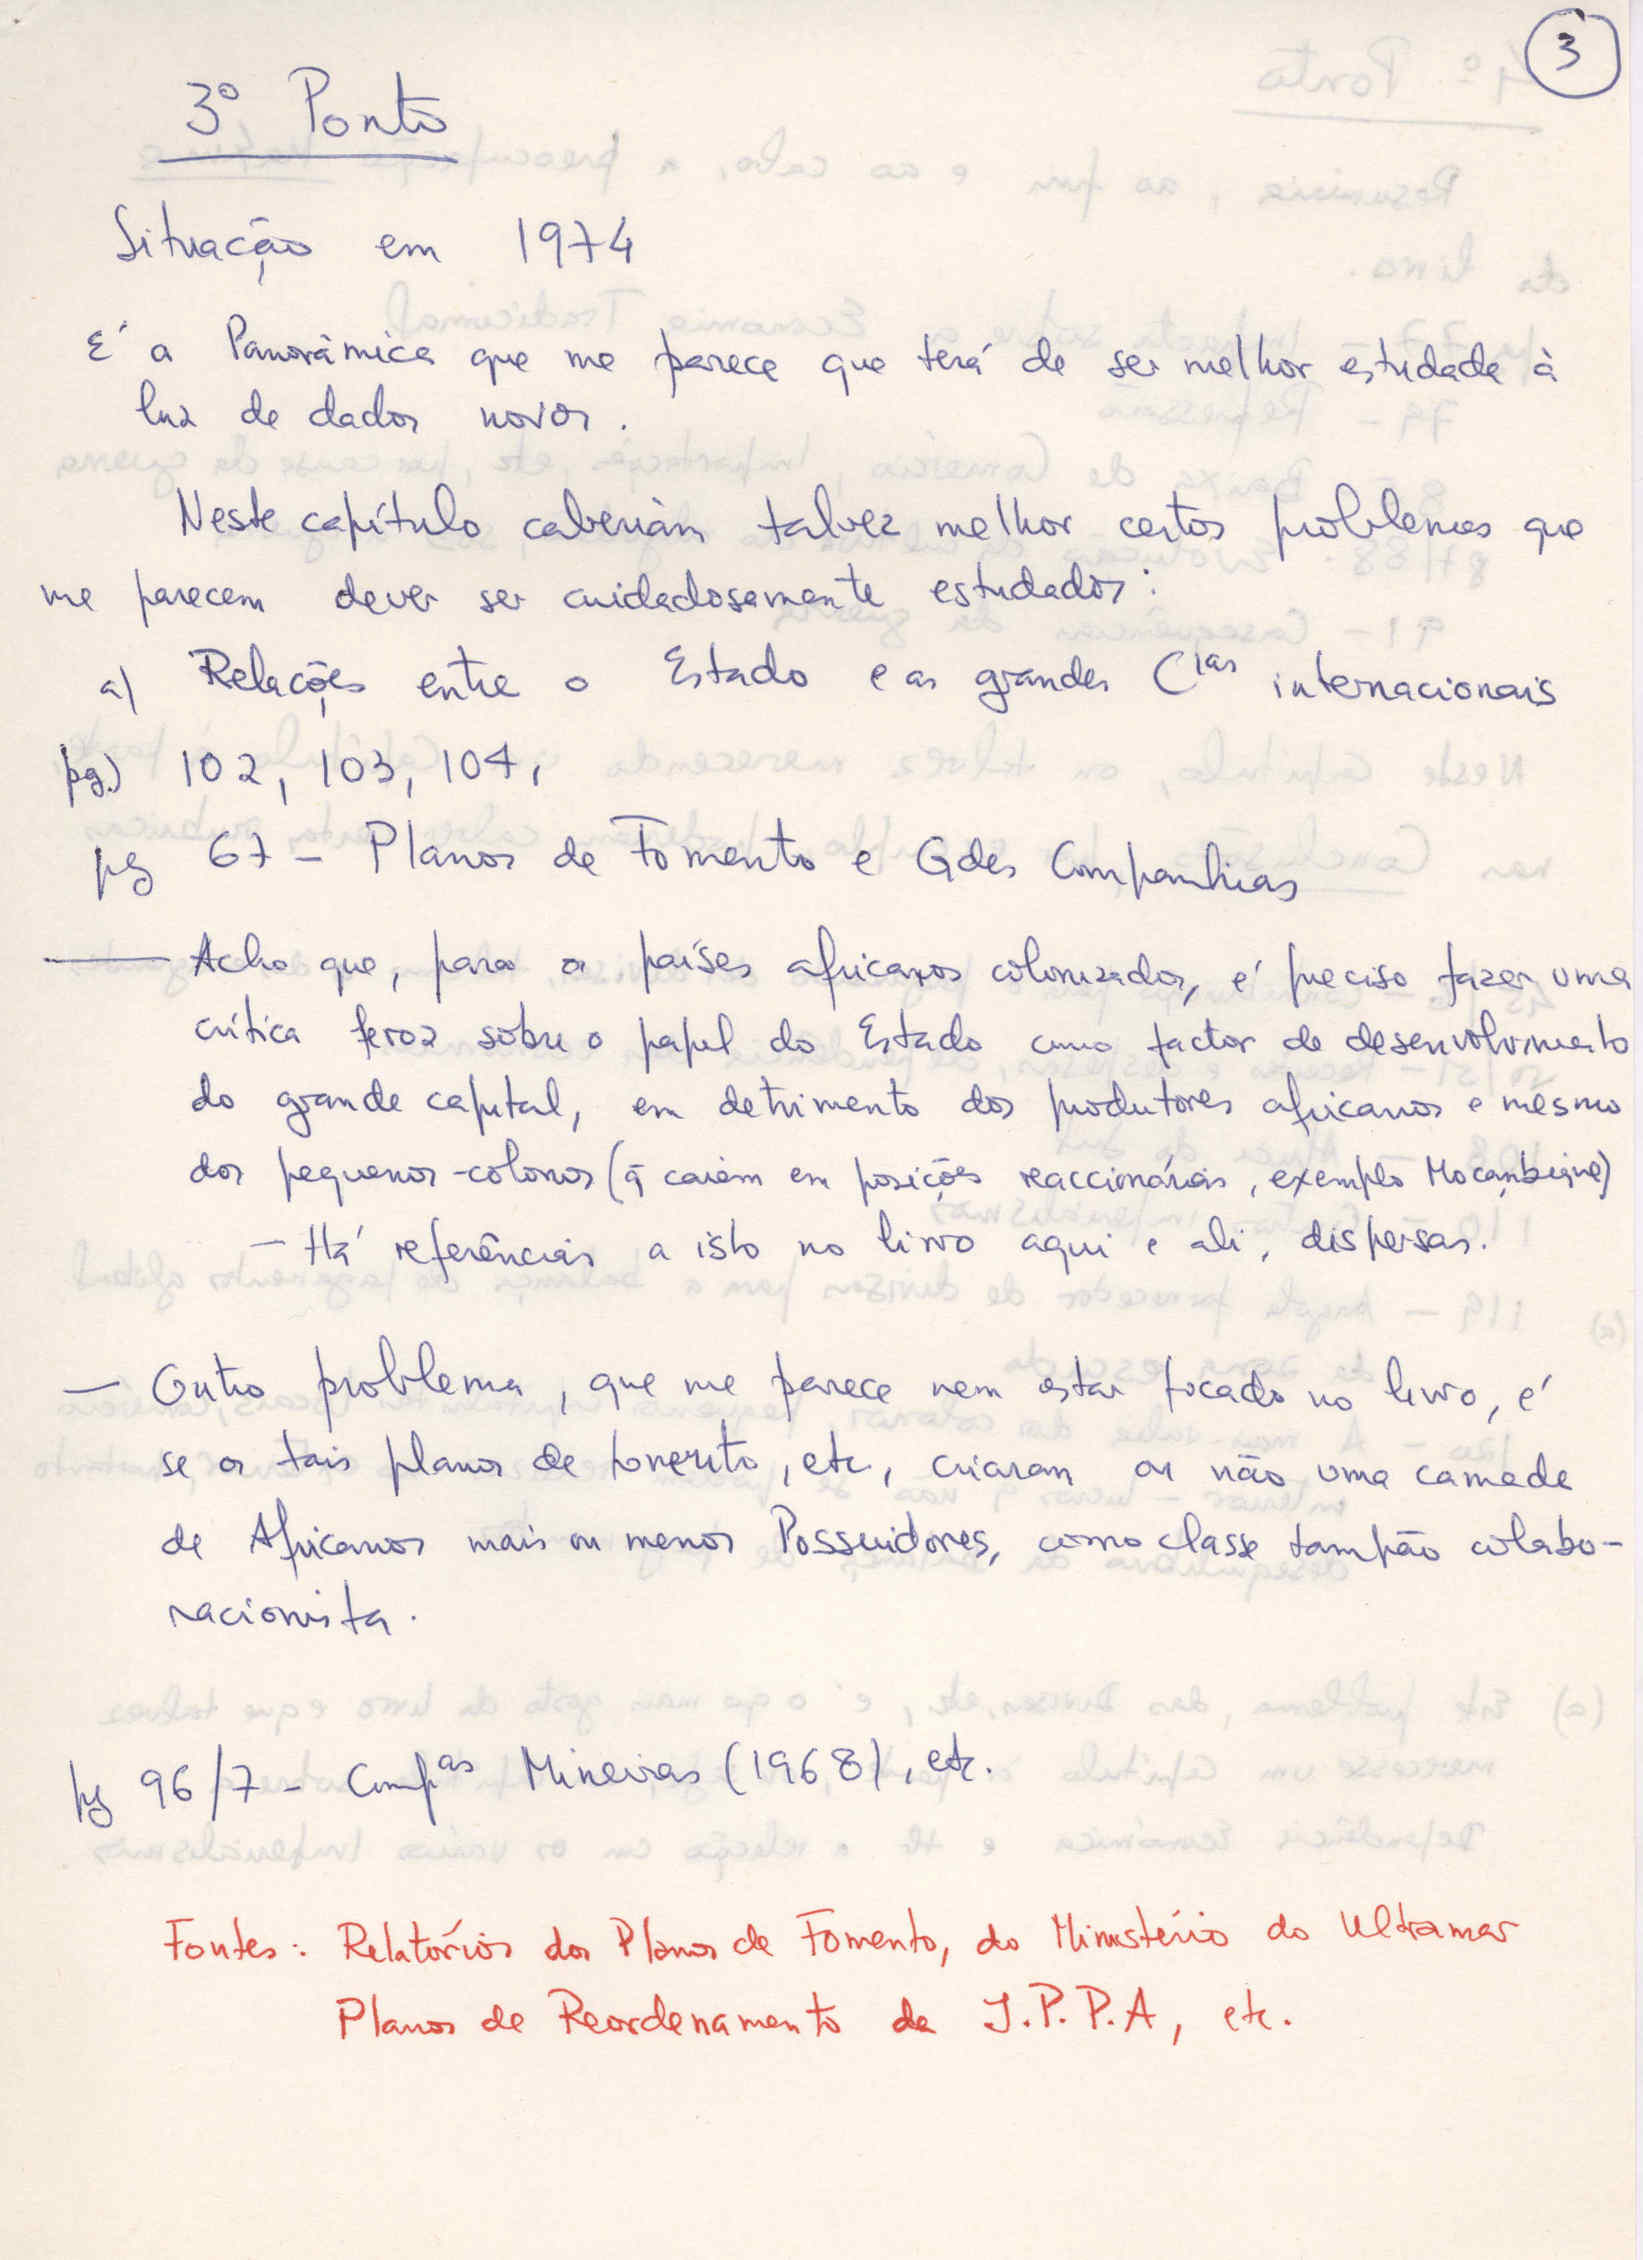 3
3º Ponto
Situação em 1974
É a Panorâmica que me parece que terá de ser melhor estudada à
luz de dados novos.
Neste capítulo caberiam talvez melhor certos problemas que
me parecem dever ser cuidadosamente estudados:
a) Relações entre o Estado e as grandes Cias internacionais
pg.) 102, 103, 104,
pg 67 - Planos de Fomento e Gdes Companhias
— Acho que, para os países africanos colonizados, é preciso fazer uma
crítica feroz sobre o papel do Estado como factor de desenvolvimento
do grande capital, em detrimento dos produtores africanos e mesmo
dos pequenos-colonos (q̃ caiem em posições reaccionárias, exemplo Moçambique)
- Há referências a isto no livro aqui e ali, dispersas.
— Outro problema, que me parece nem estar focado no livro, é
se os tais planos de fomento, etc, criaram ou não uma camada
de Africanos mais ou menos Possuidores, como classe tampão colabo-
racionista.
pg 96/7 - Compas Mineiras (1968), etc.
Fontes: Relatórios dos Planos de Fomento, do Ministério do Ultramar
Planos de Reordenamento da J.P.P.A, etc.